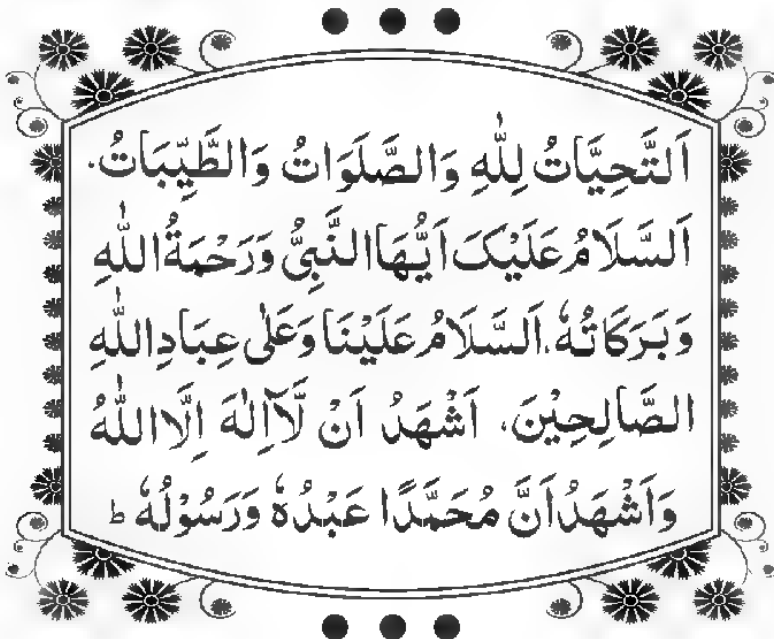 اَلتَّحِيَّاتُ لِلّٰهِ وَالصَّلَوَاتُ وَالطَّيِّبَاتُ۔
اَلسَّلَامُ عَلَيْکَ اَيُّهَا النَّبِیُّ وَرَحْمَةُ اللّٰهِ
وَبَرَکَاتُهٗ، اَلسَّلَامُ عَلَيْنَا وَعَلٰی عِبَادِ اللّٰهِ
الصَّالِحِيْنَ، اَشْهَدُ اَنْ لَّآ اِلٰهَ اِلَّا اللّٰهُ
وَاَشْهَدُ اَنَّ مُحَمَّدًا عَبْدُهٗ وَرَسُوْلُهٗ ط